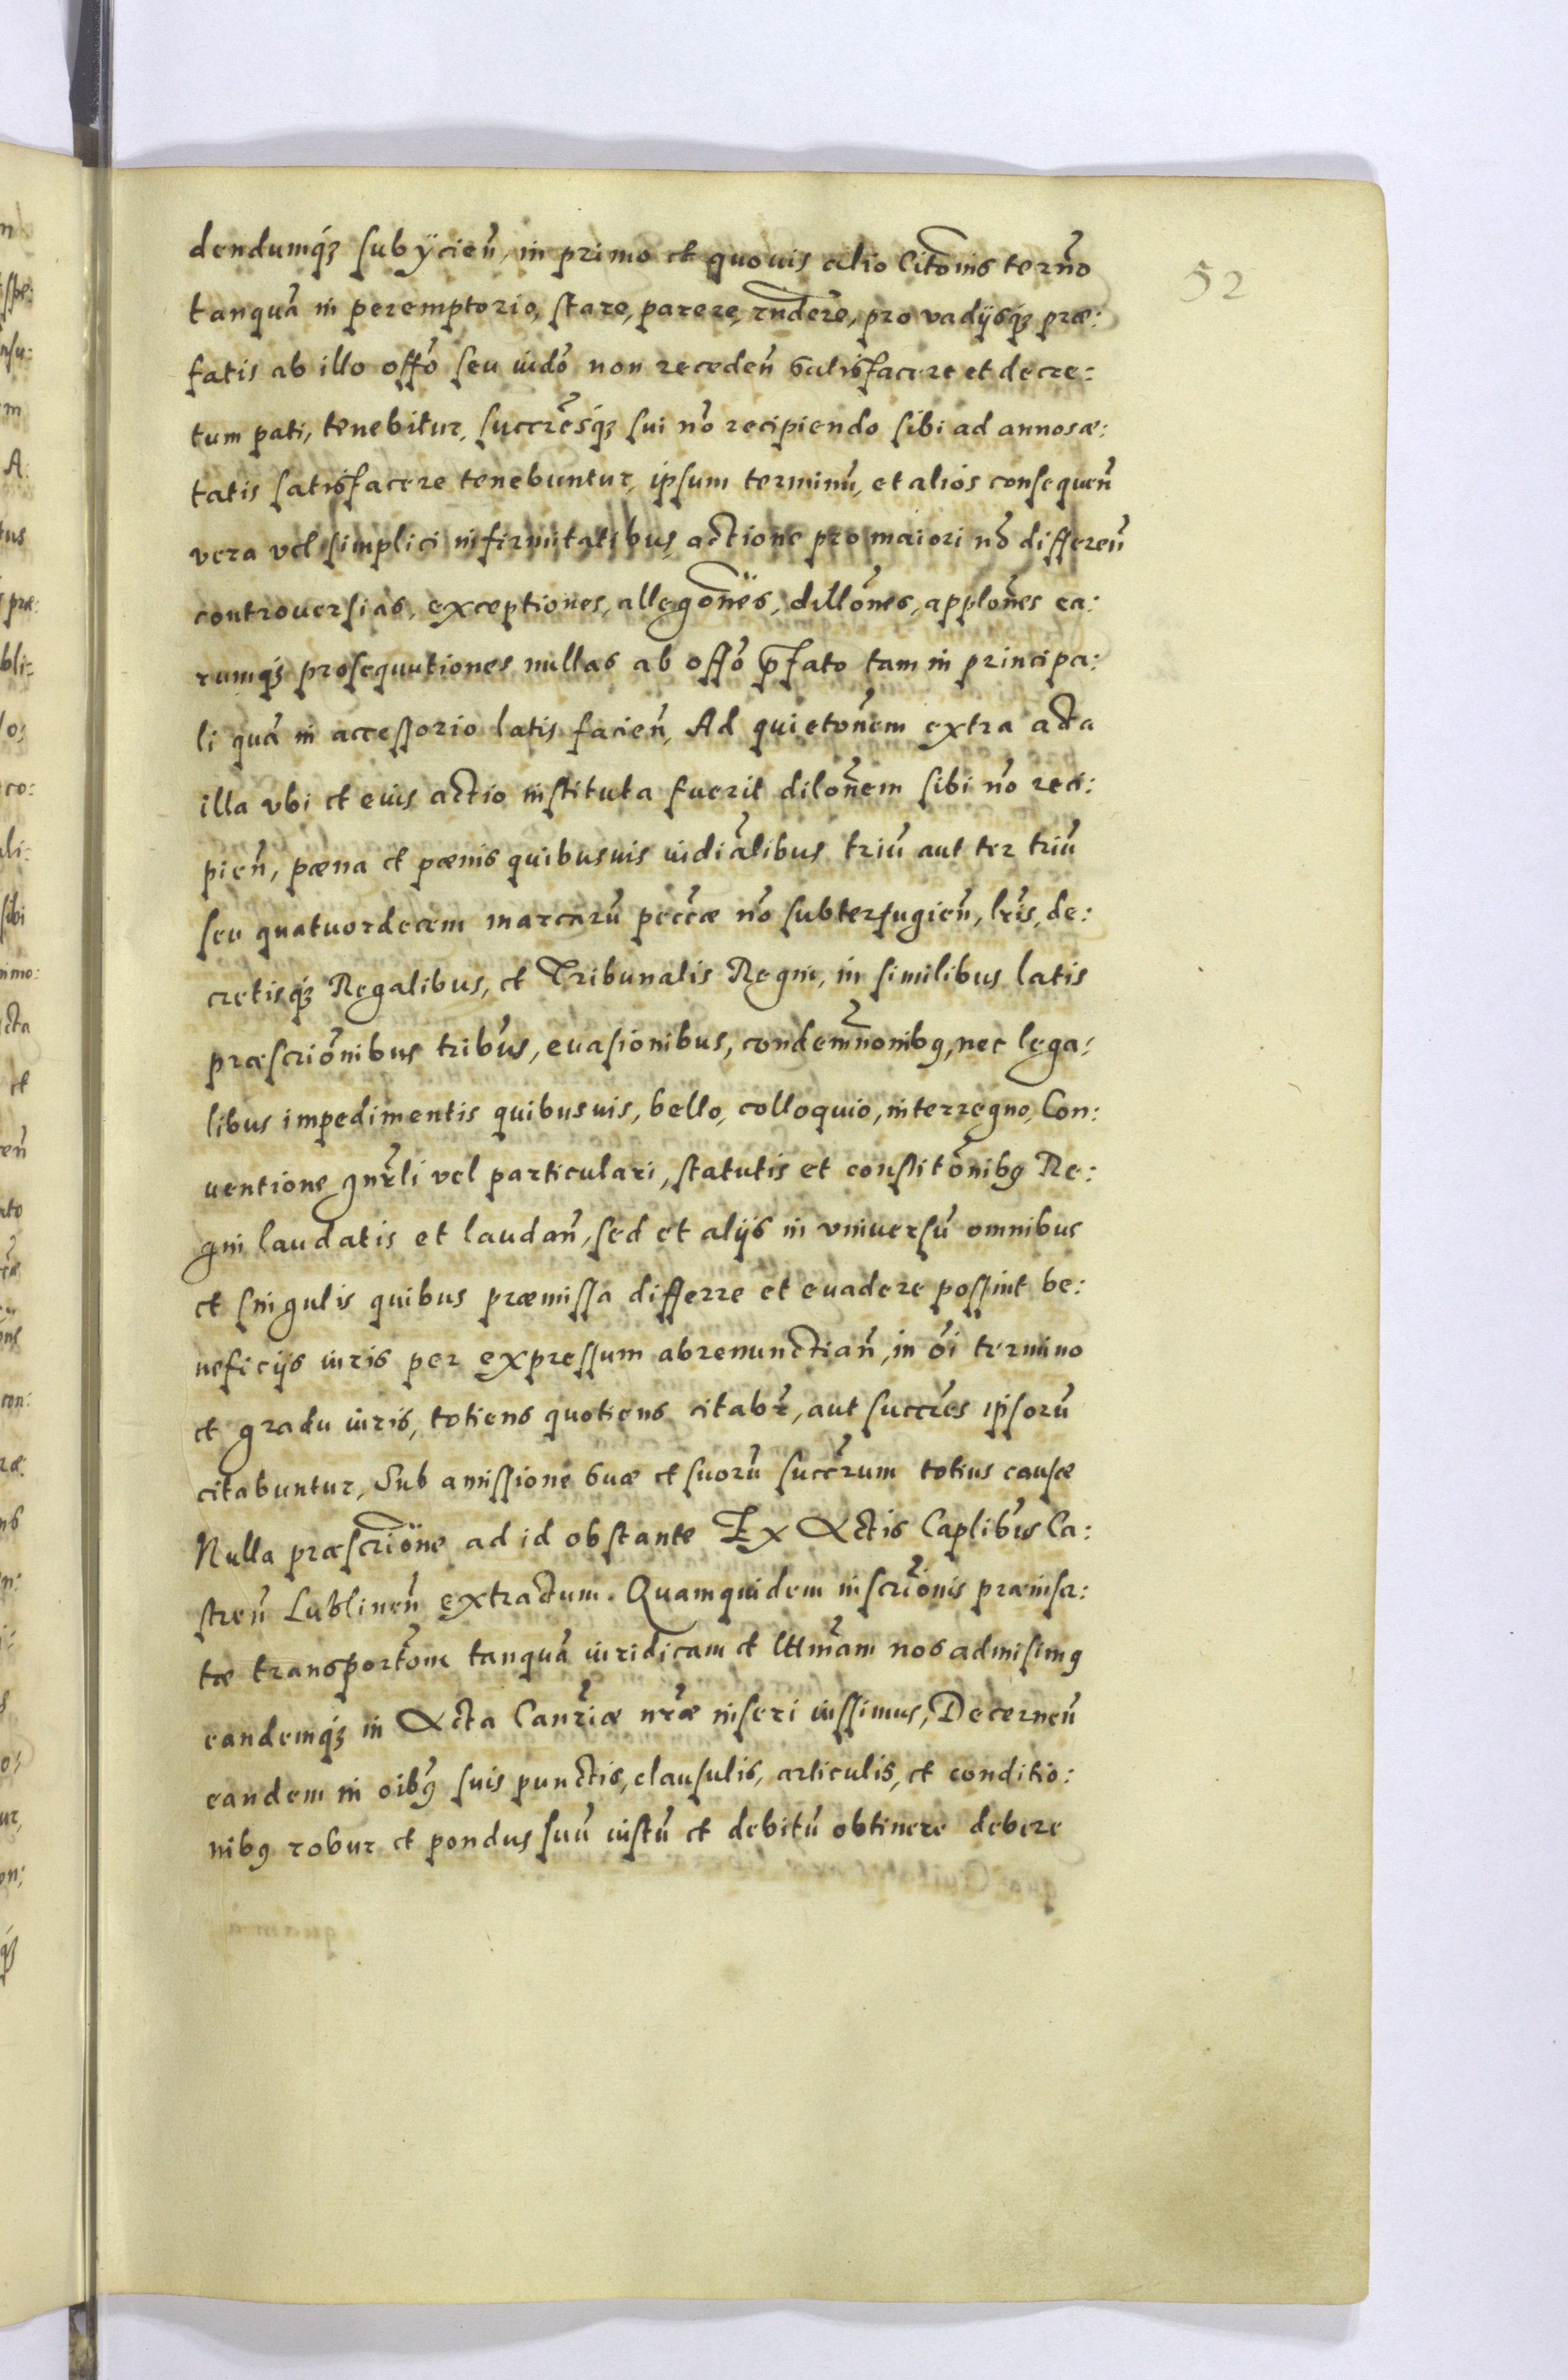 52
dendumq́ꝫ subÿcień, in primo et quouis alio Citōnis termño
tanquã in peremptorio, stare, parere, rñdere, pro vadijsq́ꝫ præ:
fatis ab illo offõ seu iudõ non recedeñ satisfacere et decre:
tum pati, tenebitur, succr̃esq́ꝫ sui nõ recipiendo sibi ad annosæ:
tatis satisfacere tenebuntur, ipsum terminũ, et alios consequeñ
vera vel simplici infirmitatibus, actione pro maiori nõ differeñ
controuersias, exceptiones, allegõnes, dillõnes, applõnes ea:
rumq́ꝫ prosequutiones nullas ab offõ p̃fato tam in principa:
li quã in accessorio latis facień, Ad quietõnem extra acta
illa vbi et eius actio instituta fuerit dilõnem sibi nõ reci:
pień, pæna et pænis quibusuis iudiãlibus triũ aut ter triũ
seu quatuordecem marcarũ pecc̃æ nõ subterfugień, lr̃is, de:
cretisq́ꝫ Regalibus, et Tribunalis Regni, in similibus latis
præscriõnibus tribũs, euasionibus, condem̃nonibꝯ, nec lega:
libus impedimentis quibusuis, bello, colloquio, interregno, Con:
uentione gnr̃li vel particulari, statutis et constitõnibꝯ Re:
gni laudatis et laudañ, sed et alijs in vniuersũ omnibus
et singulis quibus præmissa differre et euadere possint be:
neficijs iuris per expressum abrenunctiañ, in õi termino
et gradu iuris, totiens quotiens citabr̃, aut succr̃es ipsorũ
citabuntur, Sub amissione suæ et suorũ succr̃rum totius causæ
Nulla præscriõne ad id obstante Ex Actis Caplibũs Ca:
streñ Lublineñ extractum. Quamquidem inscriõnis præinser:
tæ transportõm̃e tanquã iuridicam et lttm̃am nos admisimꝯ
eandemq́ꝫ in Acta Canr̃iæ nr̃æ inseri iussimus, Decerneñ
eandem in oibꝯ́ suis punctis, clausulis, articulis, et conditio:
nibꝯ robur et pondus suũ iustũ et debitũ obtinere debere